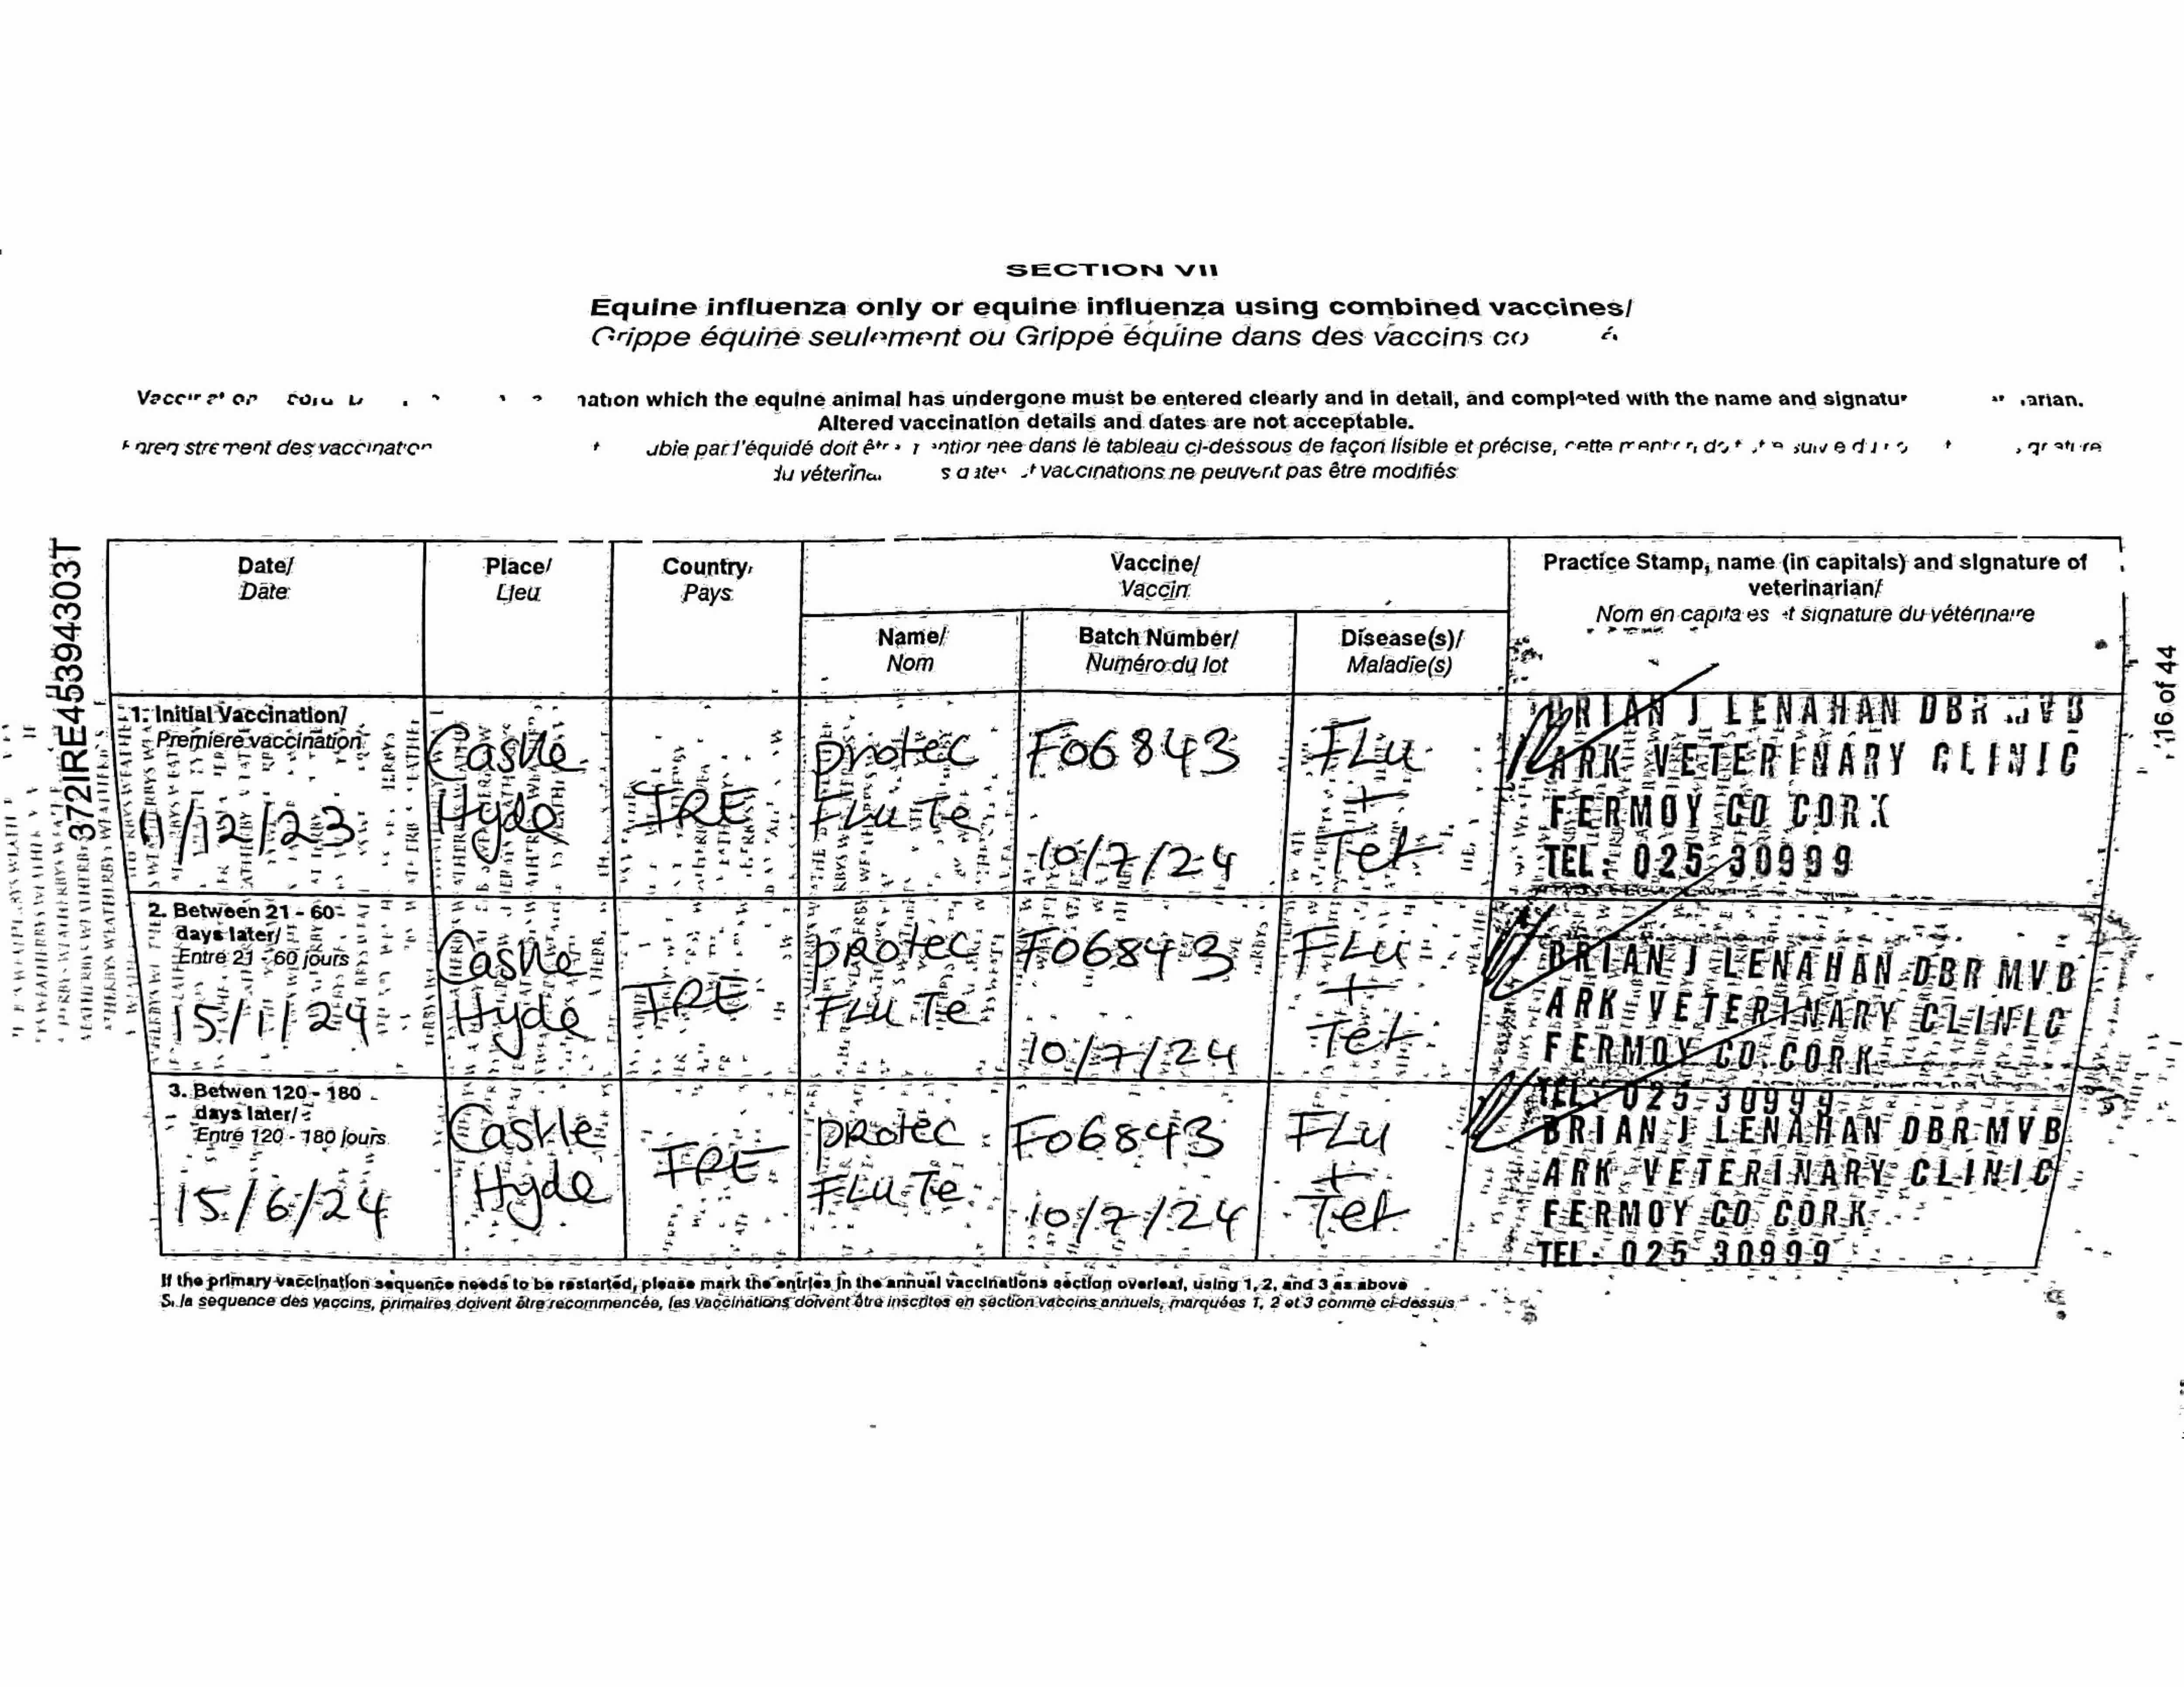 SECTION VII
Equine influenza only or equine influenza using combined vaccines/
Grippe équine seulement ou Grippe équine dans des vaccins
nation which the equine animal has undergone must be entered clearly and in detail, and completed with the name and
Altered vaccination details and dates are not acceptable.
des vaccination par l'équidé doit dans le tableau ci-dessous de façon lisible et précise, cette
du vaccinations ne peuvent pas être modifiés
372IRE45394303T
16 of 44
Date/
Date
Place/
Lieu
Country/
Pays
Vaccine/
Vaccin
Name/
Nom
Batch Number/
Numéro du lot
Disease(s)/
Maladie(s)
Practice Stamp, name (in capitals) and signature of
veterinarian/
Nom en signature du vétérinaire
1. Initial Vaccination/
Premiere vaccination
11/12/23
Castle
Hyde
IRE
protec
FLu Te
F06843
10/7/24
FLu
+
Tet
BRIAN J LENAHAN DBR MVB
ARK VETERINARY CLINIC
FERMOY CO CORK
TEL: 025 30999
2. Between 21 - 60
days later/
Entre 21 - 60 jours
15/1/24
Castle
Hyde
IRE
protec
FLu Te
F06843
10/7/24
FLu
+
Tet
BRIAN J LENAHAN DBR MVB
ARK VETERINARY CLINIC
FERMOY CO CORK
TEL: 025 30999
3. Betwen 120 - 180
days later/
Entre 120 - 180 jours
15/6/24
Castle
Hyde
IRE
protec
FLu Te
F06843
10/7/24
FLu
+
Tet
BRIAN J LENAHAN DBR MVB
ARK VETERINARY CLINIC
FERMOY CO CORK
TEL: 025 30999
If the primary vaccination sequence needs to be restarted, please mark the entries in the annual vaccinations section overleaf, using 1, 2, and 3 as above
Si la sequence des vaccins, primaires doivent être recommencée, les vaccinations doivent être inscrites en section vaccins annuels, marquées 1, 2 et 3 comme ci-dessus